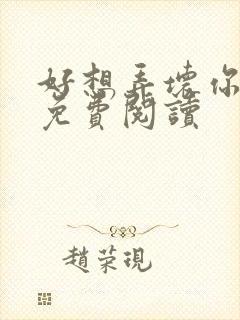 好想弄壞你
免費閱讀
趙荣現